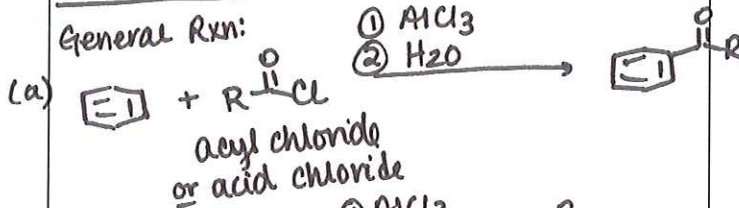 General Rxn:
① AlCl3
② H2O
(a)
+
R
O
Cl
O
R
acyl chloride
or acid chloride
① AlCl3
O